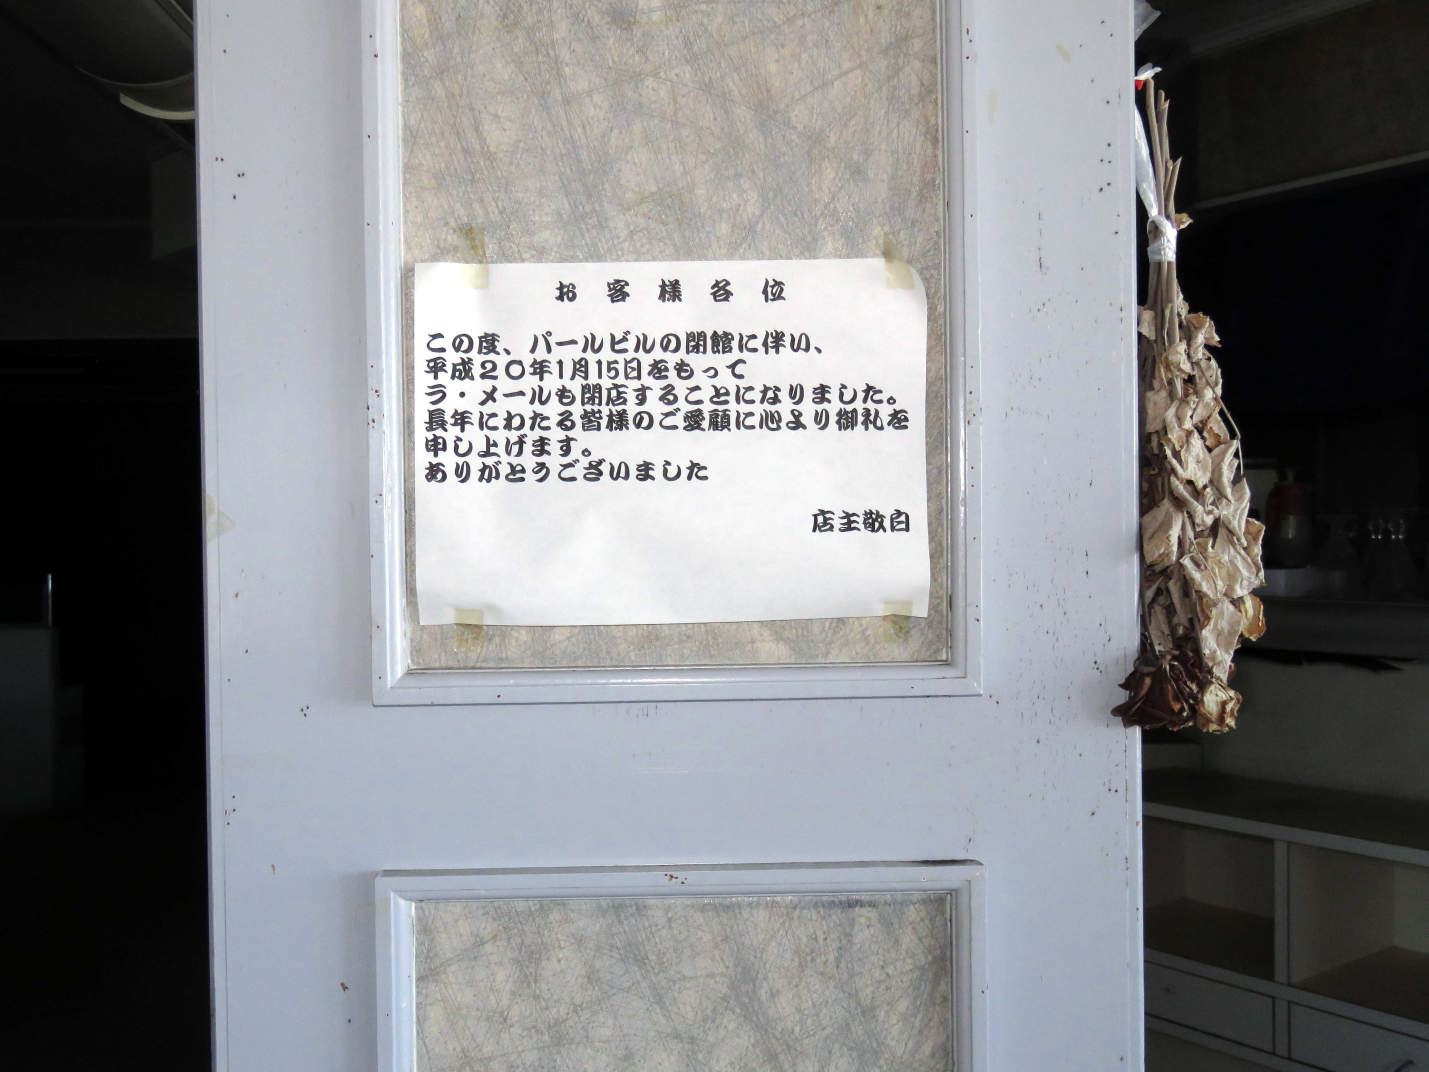 お客様各位
この度、パールビルの閉館に伴い、
平成２０年1月15日をもって
ラ・メールも閉店することになりました。
長年にわたる皆様のご愛顧に心より御礼を
申し上げます。
ありがとうございました
店主敬白